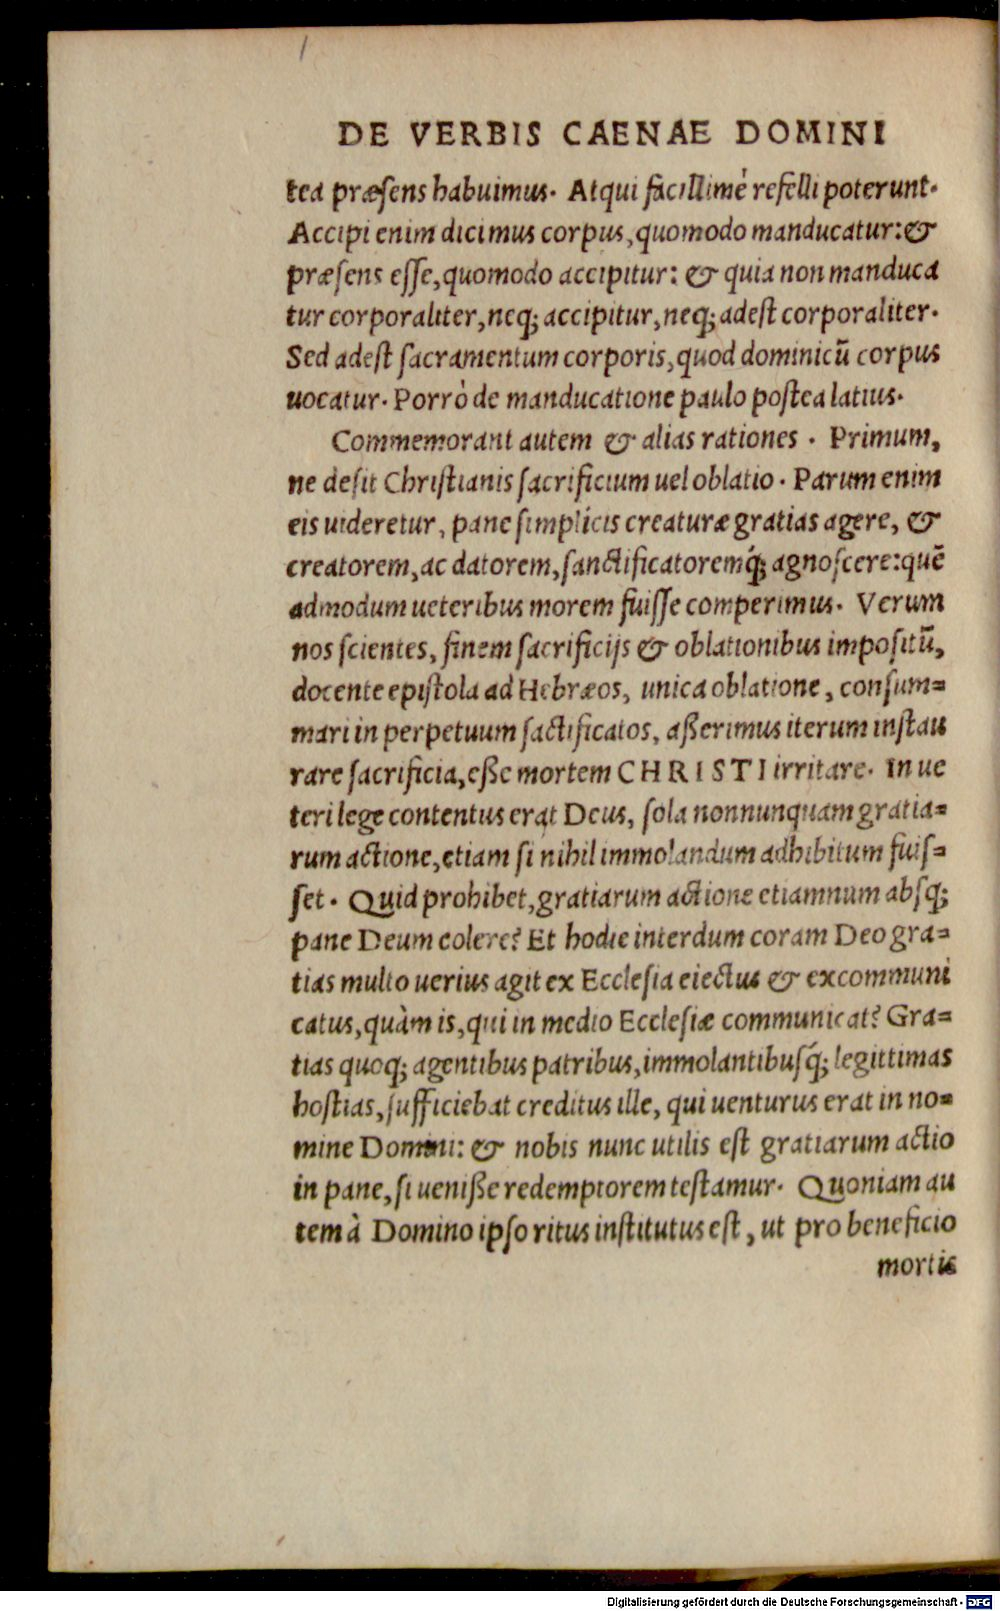 DE VERBIS CAENAE DOMINI
tea præsens habuimus. Atqui facillimè refelli poterunt.
Accipi enim dicimus corpus, quomodo manducatur: &
præsens esse, quomodo accipitur: & quia non manduca
tur corporaliter, neq; accipitur, neq; adest corporaliter.
Sed adest sacramentum corporis, quod dominicũ corpus
uocatur. Porrò de manducatione paulo postea latius.
Commemorant autem & alias rationes . Primum,
ne desit Christianis sacrificium uel oblatio . Parum enim
eis uideretur, pane simplicis creaturæ gratias agere, &
creatorem, ac datorem, sanctificatoremq́; agnoscere: quẽ
admodum ueteribus morem fuisse comperimus. Verum
nos scientes, finem sacrificijs & oblationibus impositũ,
docente epistola ad Hebræos, unica oblatione, consum=
mari in perpetuum sactificatos, aßerimus iterum instau
rare sacrificia, eße mortem CHRISTI irritare. In ue
teri lege contentus erat Deus, sola nonnunquam gratia=
rum actione, etiam si nihil immolandum adhibitum fuis=
set . Quid prohibet, gratiarum actione etiamnum absq;
pane Deum colere? Et hodie interdum coram Deo gra=
tias multo uerius agit ex Ecclesia eiectus & excommuni
catus, quàm is, qui in medio Ecclesiæ communicat? Gra=
tias quoq; agentibus patribus, immolantibusq́; legittimas
hostias, sufficiebat creditus ille, qui uenturus erat in no=
mine Domini: & nobis nunc utilis est gratiarum actio
in pane, si ueniße redemptorem testamur. Quoniam au
tem à Domino ipso ritus institutus est, ut pro beneficio
mortis
Digitalisierung gefördert durch die Deutsche Forschungsgemeinschaft - DFG